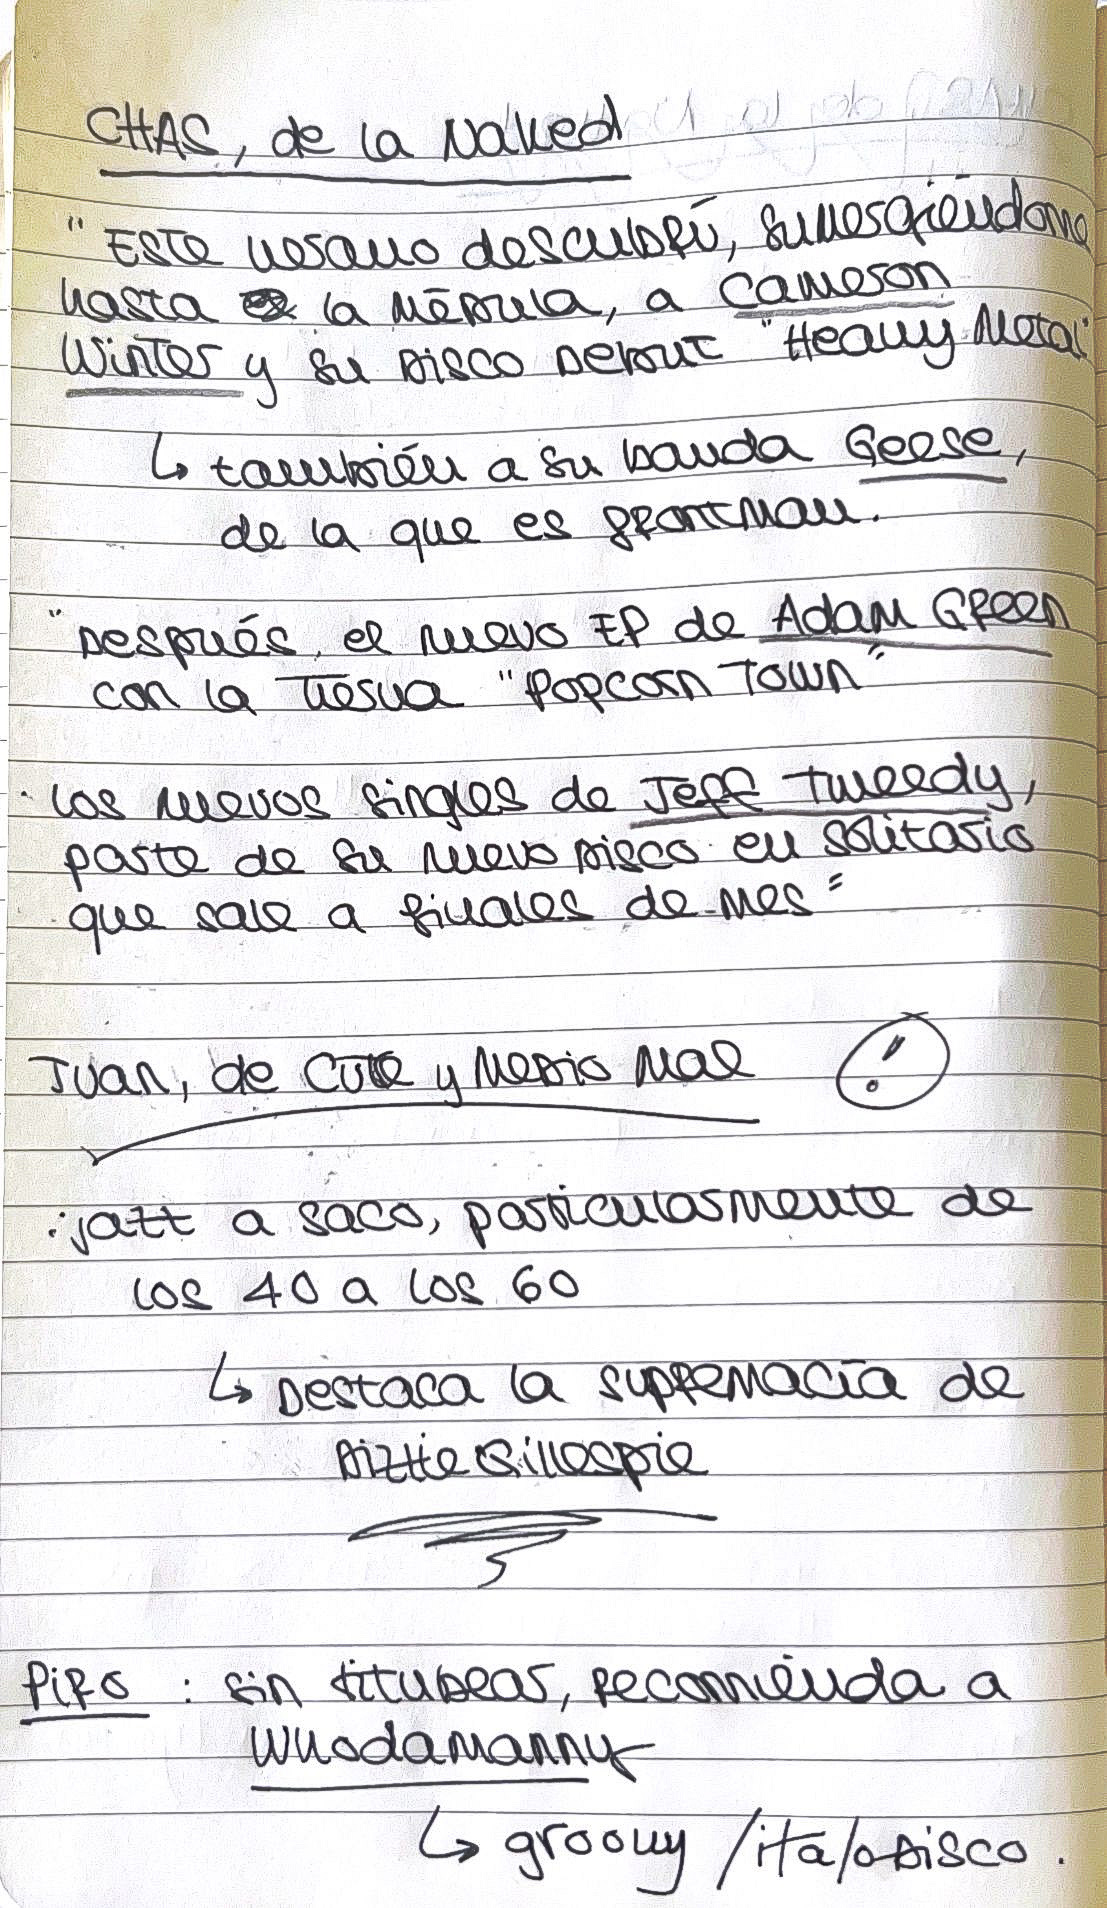 CHAS, de la Naked
"Este verano descubrí, sumergiéndome
hasta la médula, a Cameron
Winter y su disco debut "Heavy Metal"
↳ también a su banda Geese,
de la que es frontman.
"Después, el nuevo EP de Adam Green
con la tierna "Popcorn Town"
· los nuevos singles de Jeff Tweedy,
parte de su nuevo disco en solitario
que sale a finales de mes"
Juan, de Cute y Medio Mal !
· jazz a saco, particularmente de
los 40 a los 60
↳ Destaca la supremacía de
Dizzie Gillespie
Piro : sin titubear, recomienda a
Whodamanny
↳ groovy / italodisco.